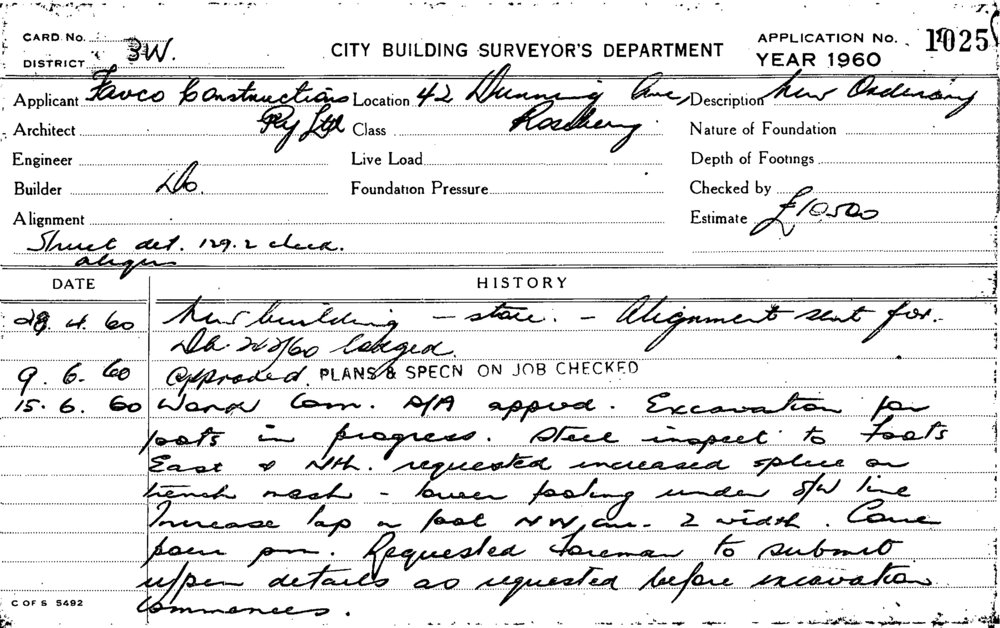 CARD No.
DISTRICT 3W.
CITY BUILDING SURVEYOR'S DEPARTMENT
APPLICATION No. 1025
YEAR 1960
Applicant Favco Constructions Location 42 Dunning Ave, Description New
Architect Pty Ltd Class Rosebery Nature of Foundation
Engineer Live Load Depth of Footings
Builder Do. Foundation Pressure Checked by
Alignment Estimate £10500
Struct det. 129.2 check.
DATE HISTORY
28.4.60 New building - store. - Alignment sent for.
Db. lodged.
9.6.60 Approved. PLANS & SPECN ON JOB CHECKED
15.6.60 Work Com. S/A apprvd. Excavation for
foots in progress. Steel inspect to Foots
East & Nth. requested increased splice on
trench mesh - lower footing under S/W line
Increase lap in foot NW 2 width. Conc
pour pm. Requested Foreman to submit
details as requested before excavation
commences.
C OF S 5492